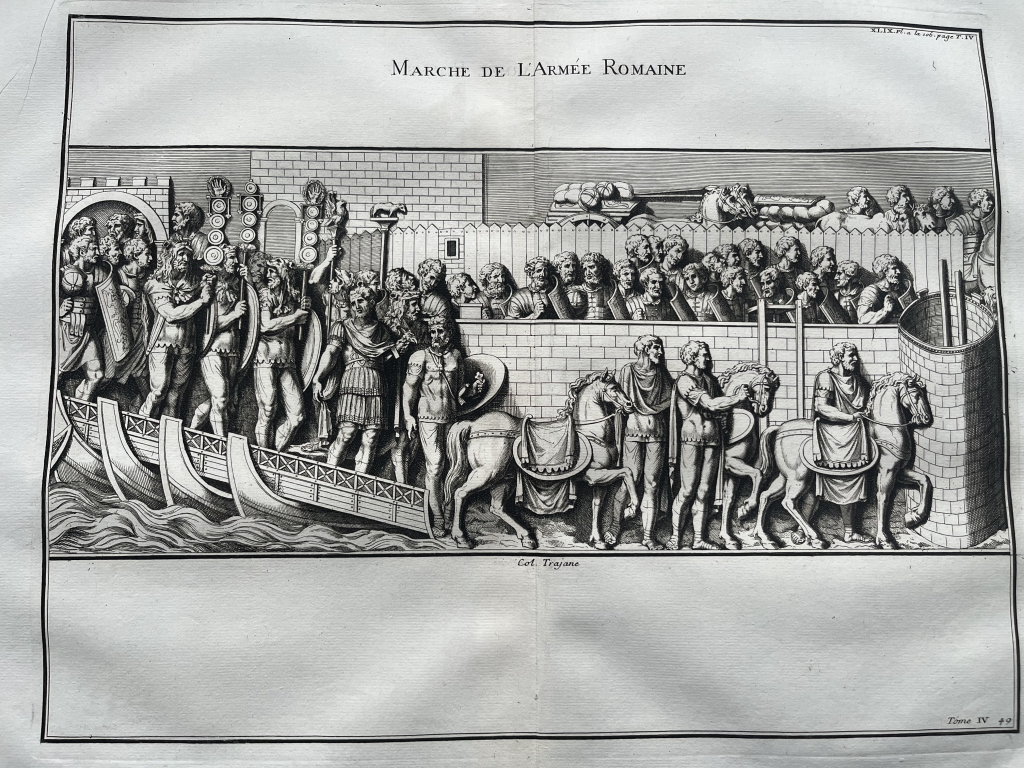 XLIX. Pl. a la 106. page T. IV
MARCHE DE L'ARMÉE ROMAINE
Col. Trajane
Tome IV 49